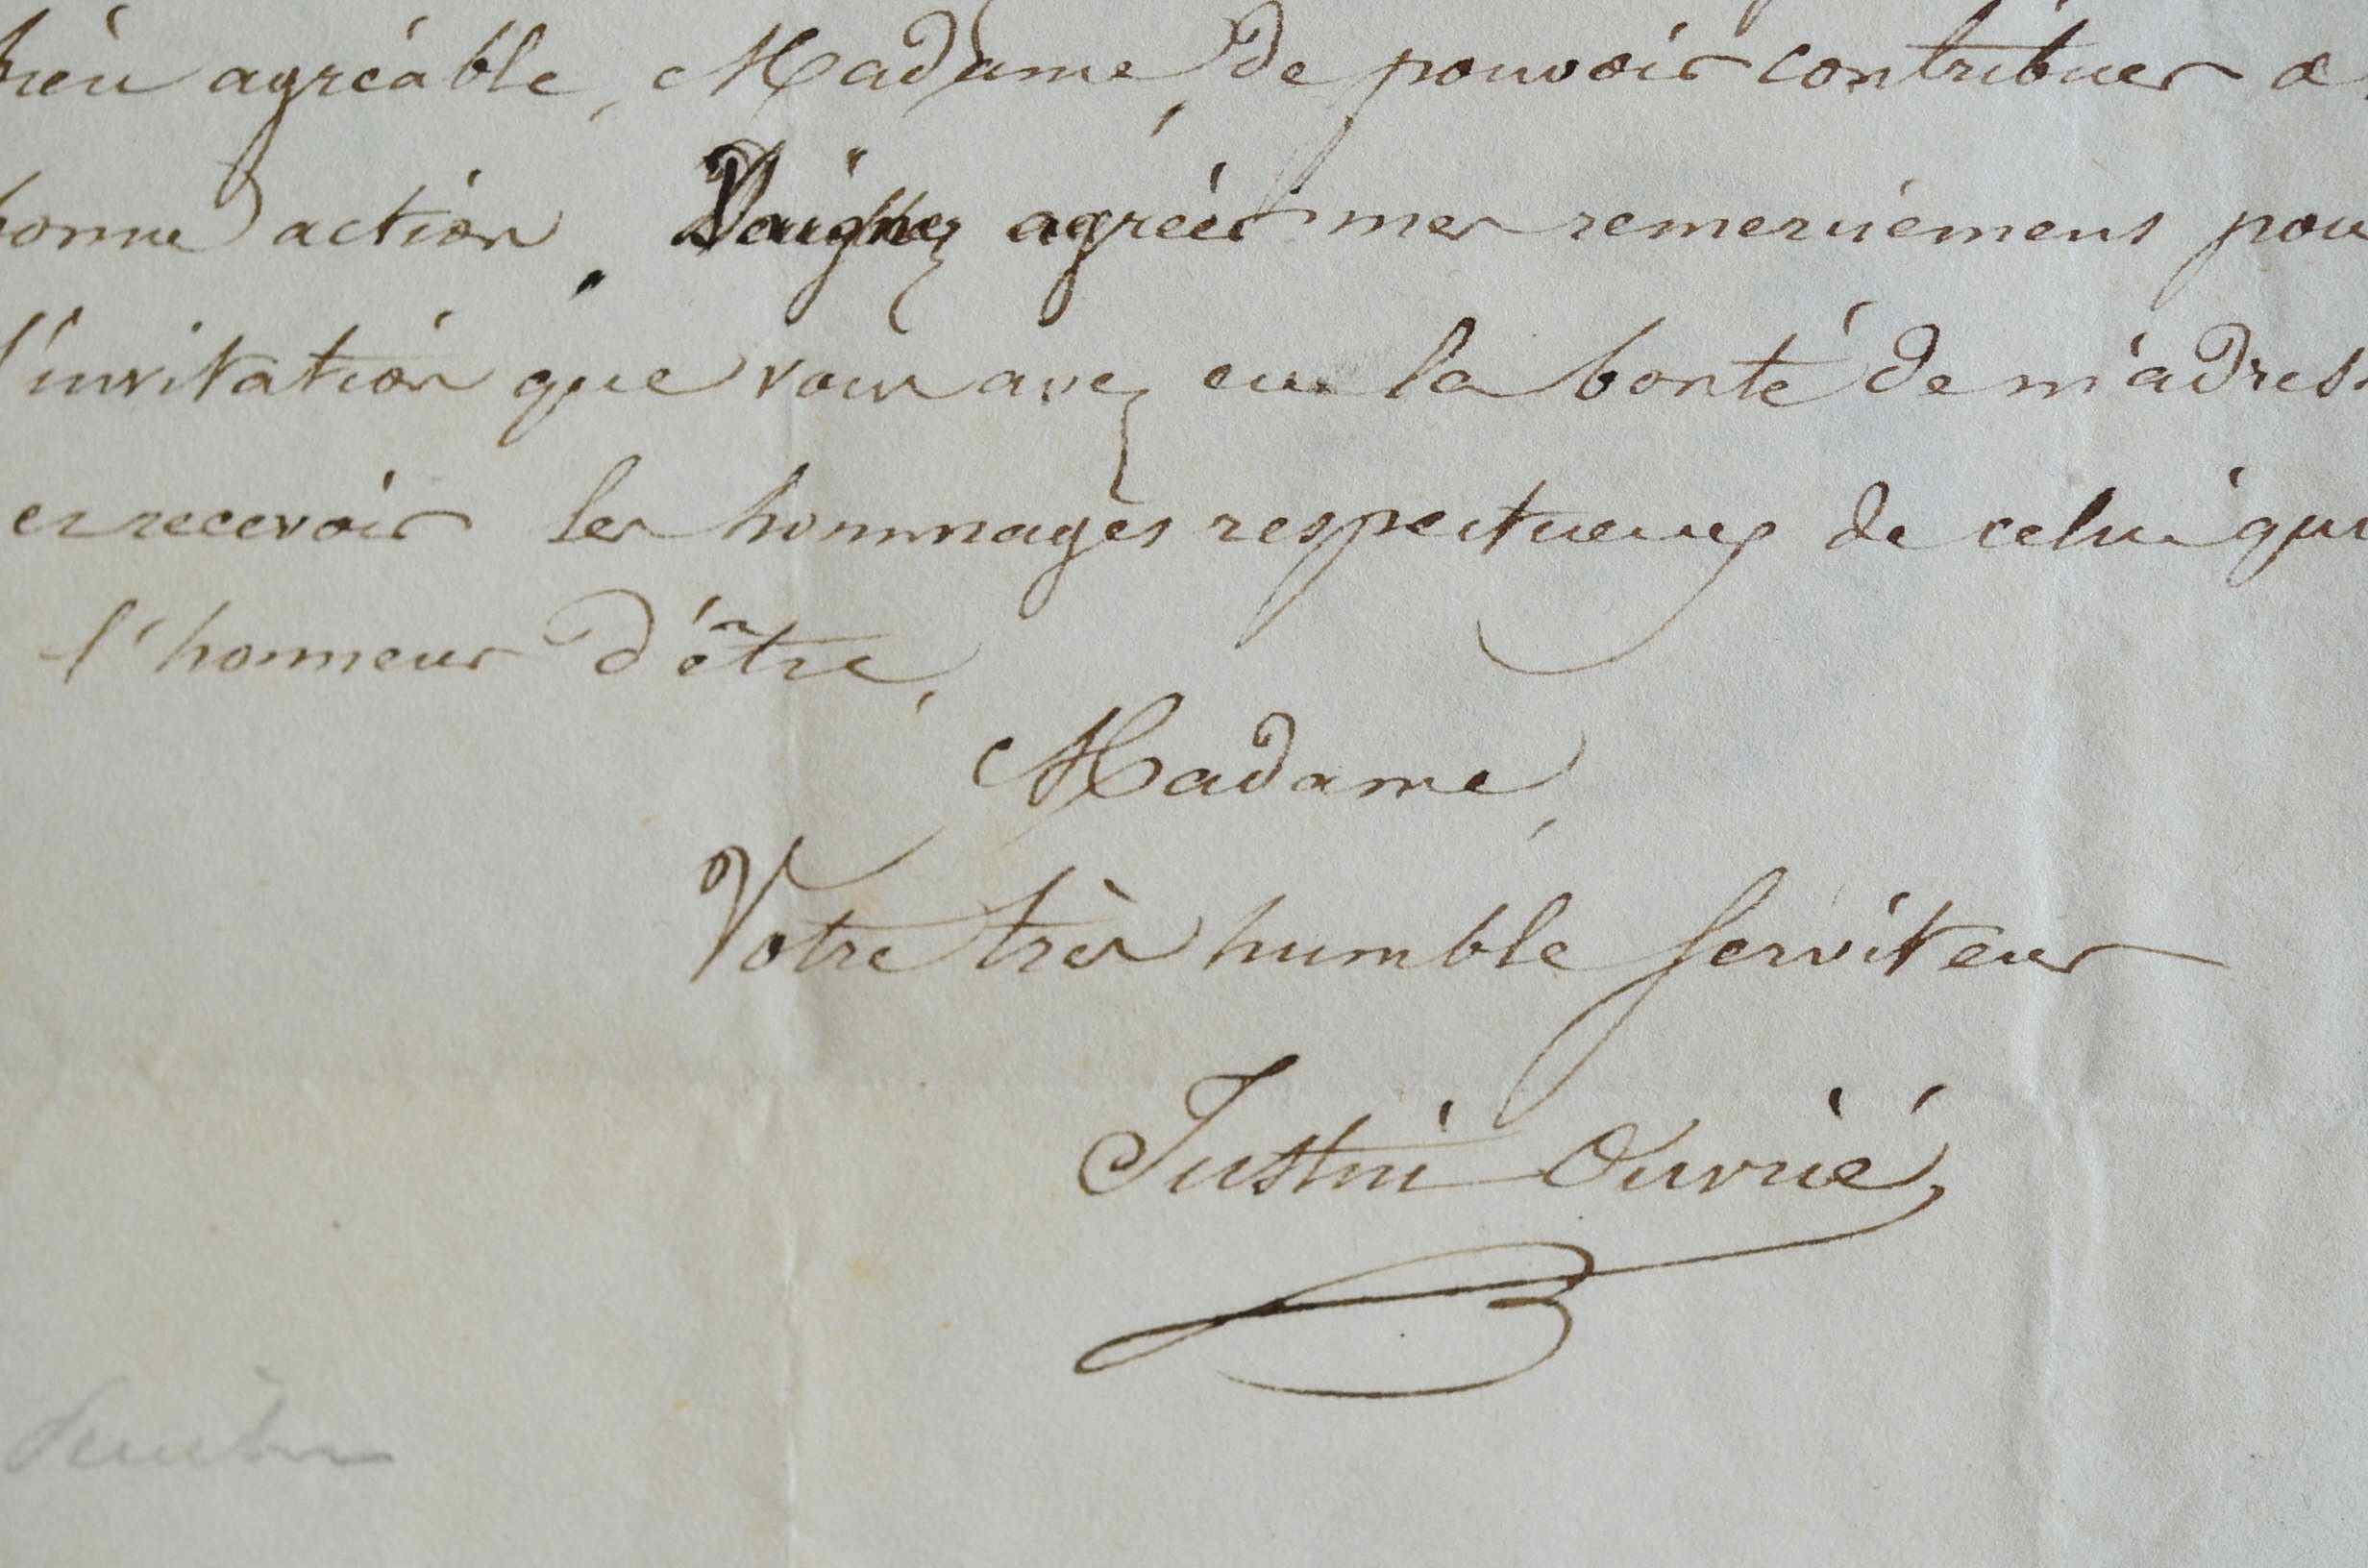 bien agréable, Madame, de pouvoir contribuer à
bonne action. Daignez agréer mes remerciemens pour
l'invitation que vous avez eu la bonté de m'adres
et recevoir les hommages respectueux de celui qui
l'honneur d'être,
Madame,
Votre très humble serviteur
Justin Ouvrié